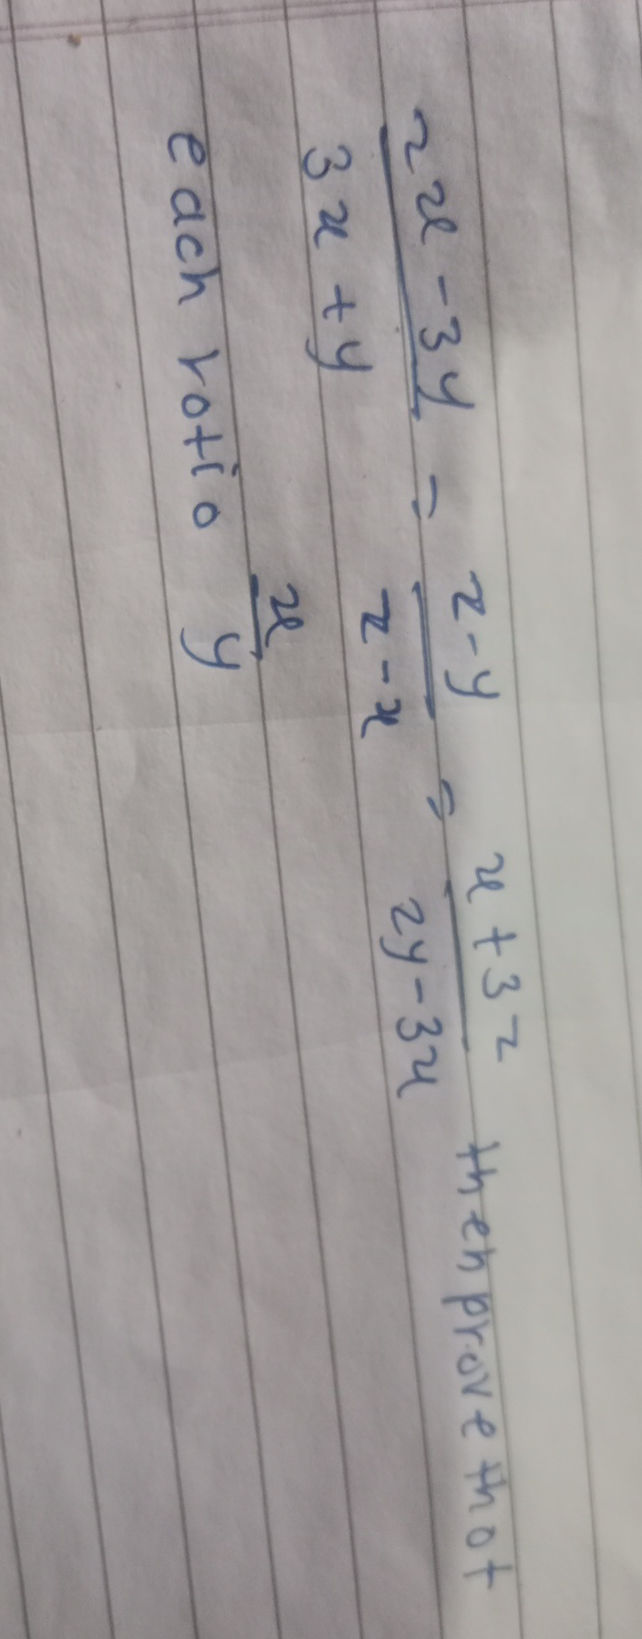 2x-3y/3x+y = z-y/z-x = x+3z/2y-3x then prove that
each ratio x/y